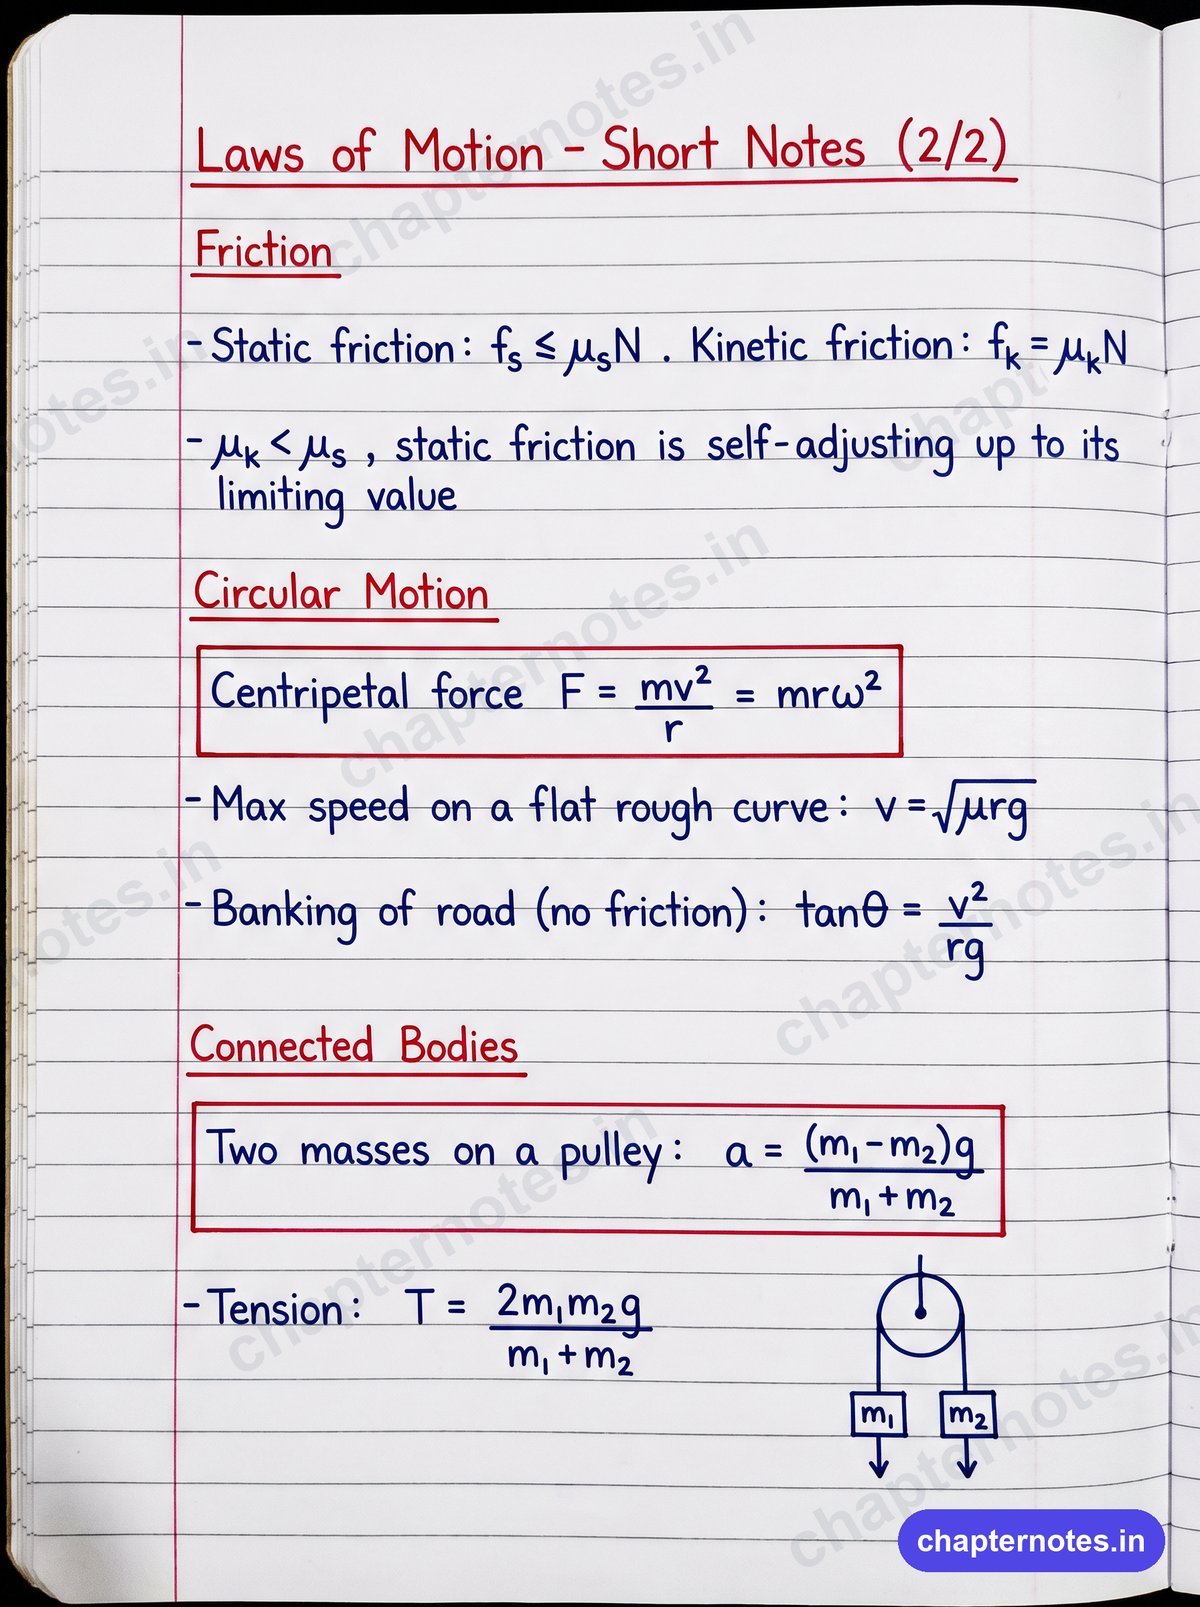 Laws of Motion - Short Notes (2/2)
Friction
- Static friction: fₛ ≤ μₛN . Kinetic friction: fₖ = μₖN
- μₖ < μₛ , static friction is self-adjusting up to its
limiting value
Circular Motion
Centripetal force F = mv²/r = mrω²
- Max speed on a flat rough curve: v = √μrg
- Banking of road (no friction): tanθ = v²/rg
Connected Bodies
Two masses on a pulley: a = (m₁-m₂)g/m₁+m₂
- Tension: T = 2m₁m₂g/m₁+m₂
m₁ m₂
chapternotes.in